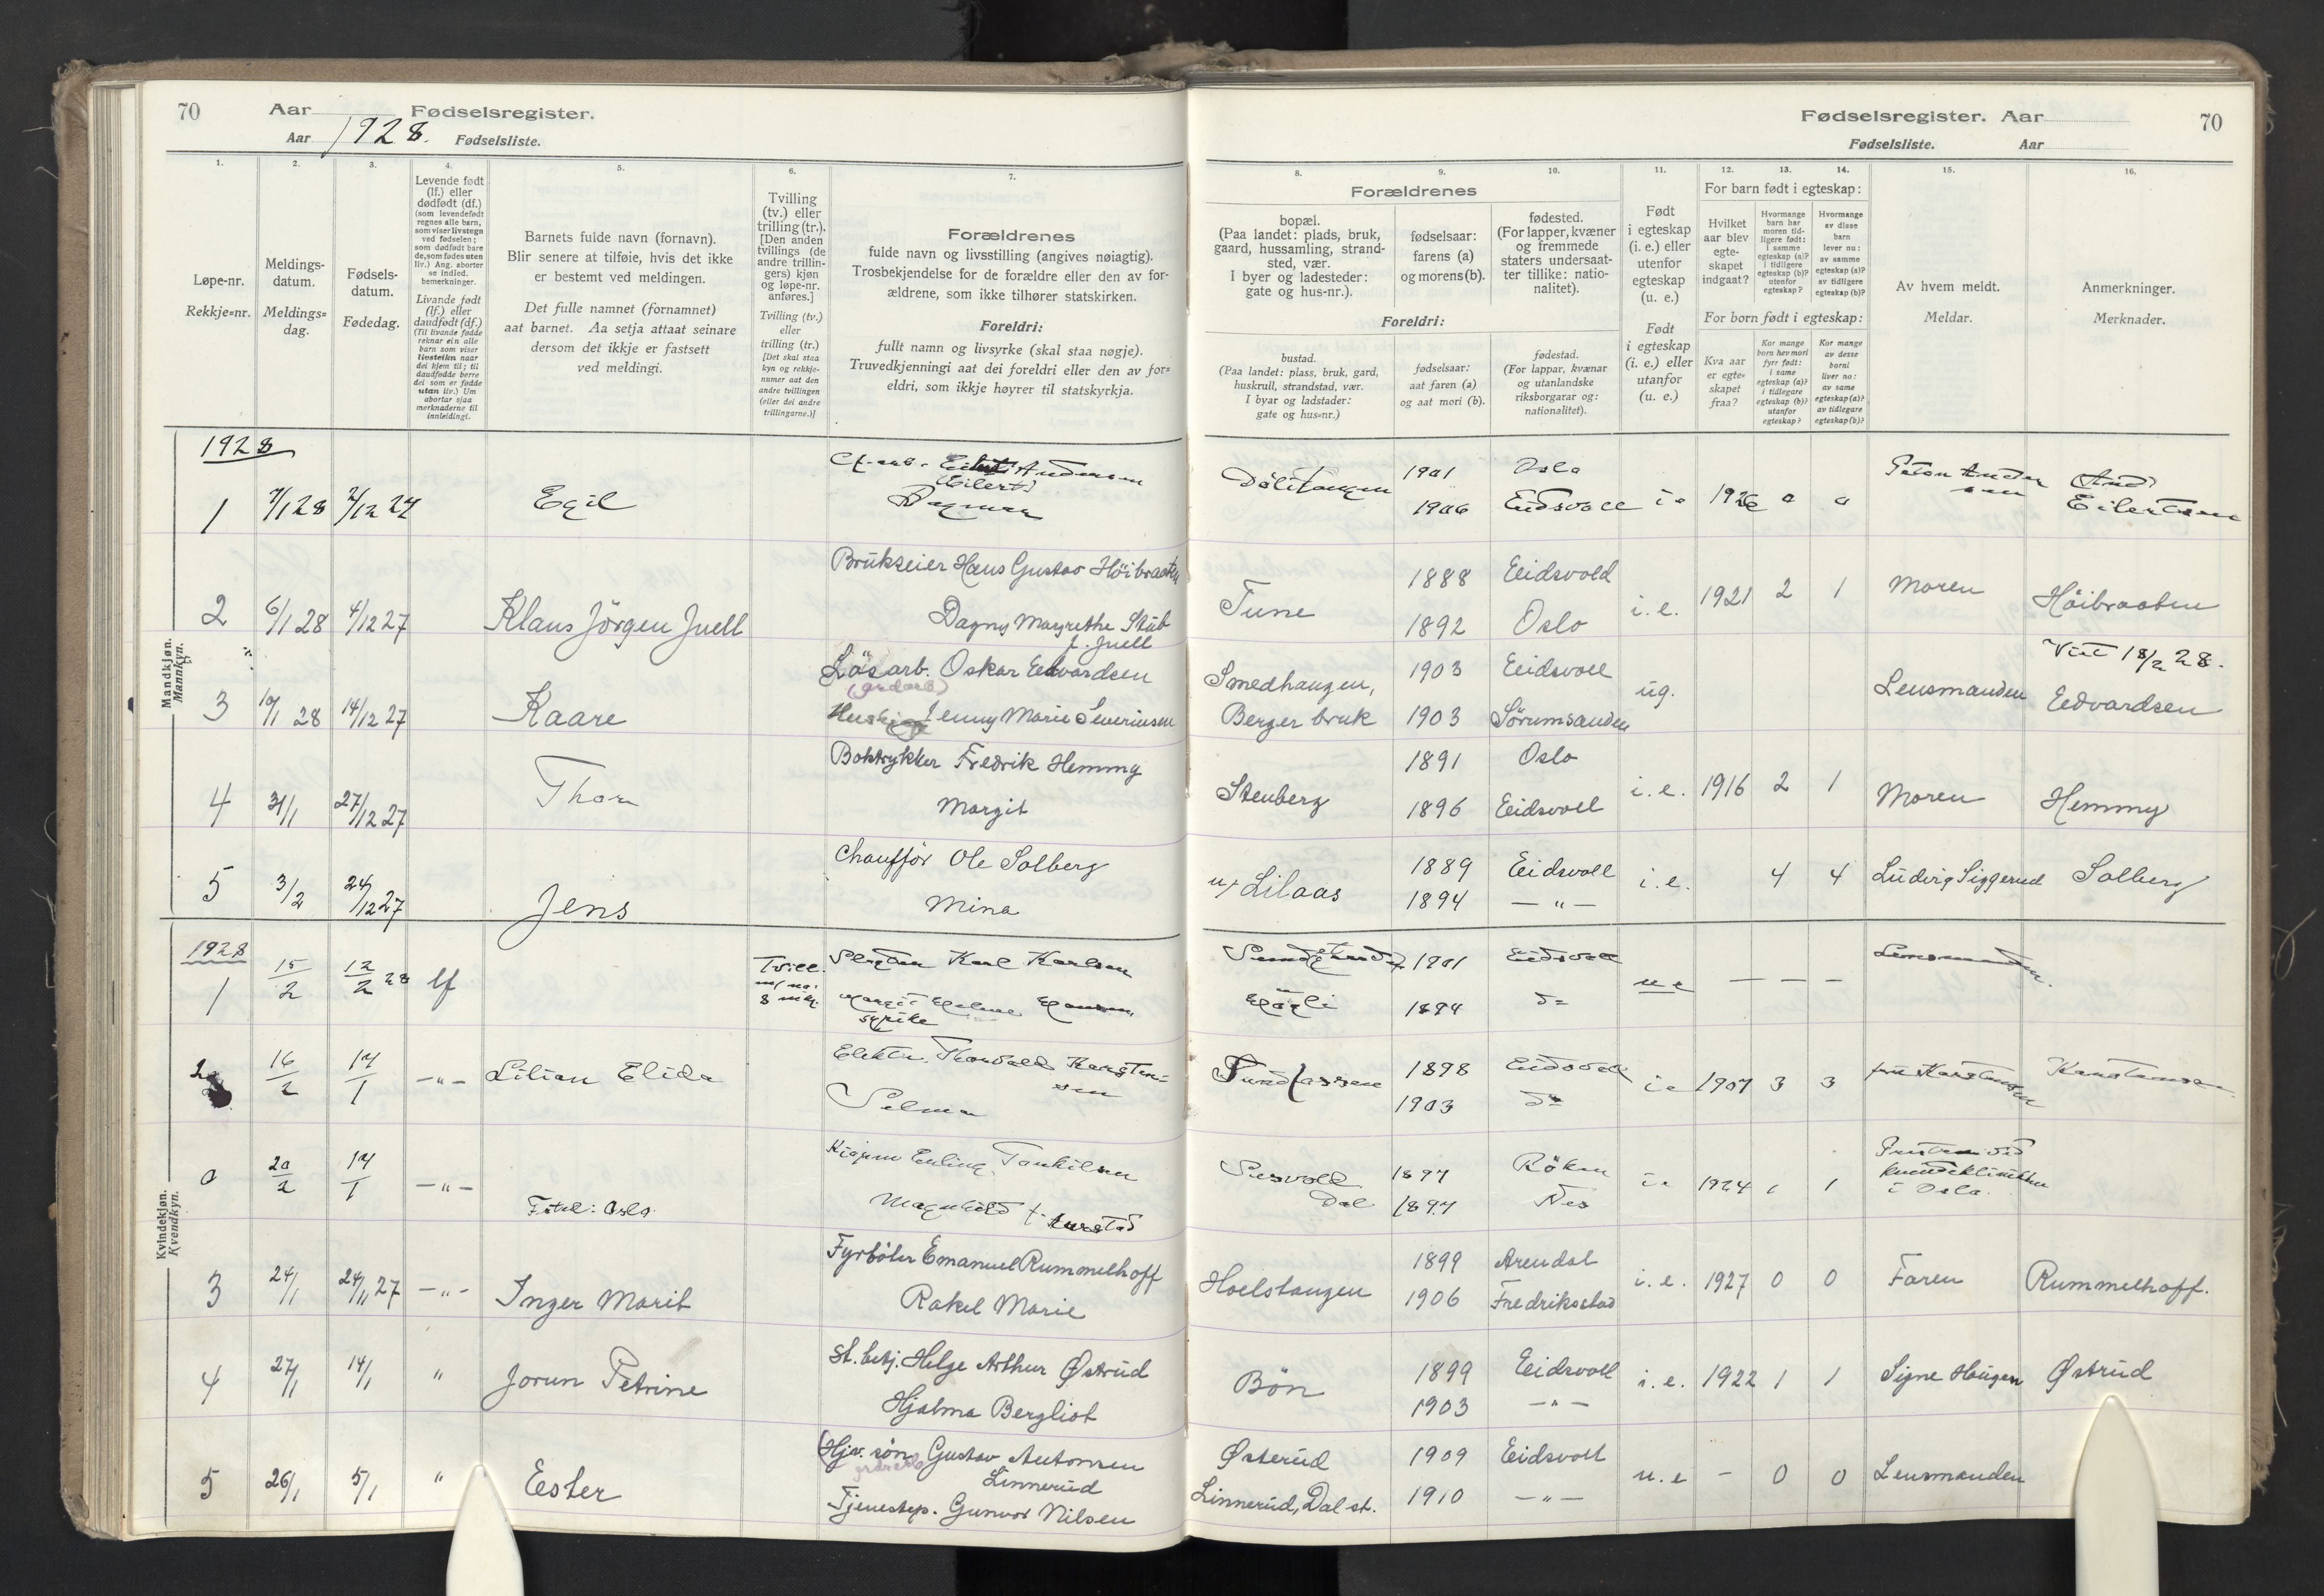 70 Aar Fødselsregister.
Aar 1928. Fødselsliste.
1. 2. 3. 4. 5. 6. 7.
Løpe-nr.
Rekkje-nr.
Meldings-
datum.
Meldings-
dag.
Fødsels-
datum.
Fødedag.
Levende født
(lf.) eller
dødfødt (df.)
(som levendefødt
regnes alle barn,
som viser livstegn
ved fødselen;
som dødfødt bare
de, som fødes uten
liv.) Ang. aborter
se indled.
bemerkninger.
Livande født
(lf.) eller
daudfødt (df.)
(Til livande fødde
reknar ein alle
barn som viser
livsteikn naar
dei kjem til; til
daudfødde berre
dei som er fødde
utan liv.) Um
abortar sjaa
merknaderne til
innleidingi.
Barnets fulde navn (fornavn).
Blir senere at tilføie, hvis det ikke
er bestemt ved meldingen.
Det fulle namnet (fornamnet)
aat barnet. Aa setja attaat seinare
dersom det ikkje er fastsett
ved meldingi.
Tvilling
(tv.) eller
trilling (tr.).
[Den anden
tvillings (de
andre trillin-
gers) kjøn
og løpe-nr.
anføres.]
Tvilling (tv.)
eller
trilling (tr.)
[Det skal staa
kyn og rekkje-
numer aat den
andre tvillingen
(eller dei andre
trillingarne.)]
Forældrenes
fulde navn og livsstilling (angives nøiagtig).
Trosbekjendelse for de forældre eller den av for-
ældrene, som ikke tilhører statskirken.
Foreldri:
fullt namn og livsyrke (skal staa nøgje).
Truvedkjenningi aat dei foreldri eller den av for-
eldri, som ikkje høyrer til statskyrkja.
Mandkjøn.
Mannkyn.
1928
1 7/1 28 2/12 27 Egil
Andersen
(Eilert)
Dagmar
Brukseier Hans Gustav Höibraaten
2 6/1 28 4/12 27 Klaus Jörgen Juell
Dagny Margrethe Stub
f. Juell
Løsarb. Oskar Edvardsen
3 10/1 28 14/12 27 Kaare
Jenny Marie Severinsen
Boktrykker Fredrik Hemmy
4 31/1 27/12 27 Thor
Margit
Chauffør Ole Solberg
5 3/2 24/12 27 Jens
Mina
Kvindekjøn.
Kvendkyn.
1928
1 15/2 12/2 28 lf
Tvill.
Karl Karlsen
Margit Helene Hansen,
2 16/2 17/1 -"- Lilian Elida
Elektr. Thorvald Karsten-
sen
Selma
0 20/2 17/1 -"-
Født: Oslo
Erling Torkilsen
Magnhild f.
Fyrbøter Emanuel Rummelhoff
3 24/1 24/11 27 -"- Inger Marit
Rakel Marie
St.betj. Helge Arthur Østrud
4 27/1 14/1 " Jorun Petrine
Hjalma Bergliot
(Hjv. søn Gustav Antonsen
Linnerud
5 26/1 5/1 " Ester
Tjenestep. Gunvor Nilsen
Fødselsregister. Aar 70
Fødselsliste. Aar
8. 9. 10. 11. 12. 13. 14. 15. 16.
Forældrenes
bopæl.
(Paa landet: plads, bruk,
gaard, hussamling, strand-
sted, vær.
I byer og ladesteder:
gate og hus-nr.).
fødselsaar:
farens (a)
og morens (b).
fødested.
(For lapper, kvæner
og fremmede
staters undersaat-
ter tillike: natio-
nalitet).
Foreldri:
bustad.
(Paa landet: plass, bruk, gard,
huskrull, strandstad, vær.
I byar og ladstader:
gate og hus-nr.)
fødselsaar:
aat faren (a)
og aat mori (b).
fødestad.
(For lappar, kvænar
og utanlandske
riksborgarar og:
nationalitet).
Født
i egteskap
(i. e.) eller
utenfor
egteskap
(u. e.)
Født
i egteskap
(i. e.) eller
utanfor
(u. e.)
For barn født i egteskap:
Hvilket
aar blev
egte-
skapet
indgaat?
Hvormange
barn har
moren tid-
ligere født:
i samme
egteskap (a)?
i tidligere
egteskap (b)?
utenfor
egteskap?
Hvormange
av disse
barn
lever nu:
av samme
egteskap (a)?
av tidligere
egteskap (b)?
For born født i egteskap:
Kva aar
er egte-
skapet
fraa?
Kor mange
born hev mori
fyrr født:
i same
egteskap (a)?
i tidlegare
egteskap (b)?
utanfor
egteskap?
Kor mange
av desse
borni
liver no:
av same
egteskap (a)?
av tidlegare
egteskap (b)?
Av hvem meldt.
Meldar.
Anmerkninger.
Merknader.
1901 Oslo
1906 Eidsvoll i e 1926 0 0
Eilertsen
1888 Eidsvold
Tune i.e. 1921 2 1 Moren Höibraaten
1892 Oslo
Vist 18/2 28.
Smedhaugen, 1903 Eidsvoll ug. Lensmanden Edvardsen
Berger bruk 1903 Sörumsanden
1891 Oslo
Stenberg i.e. 1916 2 1 Moren Hemmy
1896 Eidsvoll
1889 Eidsvoll
Lilaas i.e. 4 4 Ludvig Siggerud Solberg
1894 -"-
1901 Eidsvoll u e — — — Lensmanden.
1894 do
1898 Eidsvoll
i e 1907 3 3 fru Karstensen Karstensen
1903 do
1897 Röken
Dal 1897 Nes i e 1924 1 1
i Oslo.
1899 Arendal
Hoelstangen i.e. 1927 0 0 Faren Rummelhoff.
1906 Fredriksstad
1899 Eidsvoll
Bön i.e. 1922 1 1 Signe Haugen Østrud
1903 -"-
Østerud 1909 Eidsvoll
u.e - 0 0 Lensmanden
Linnerud, Dal st. 1910 -"-